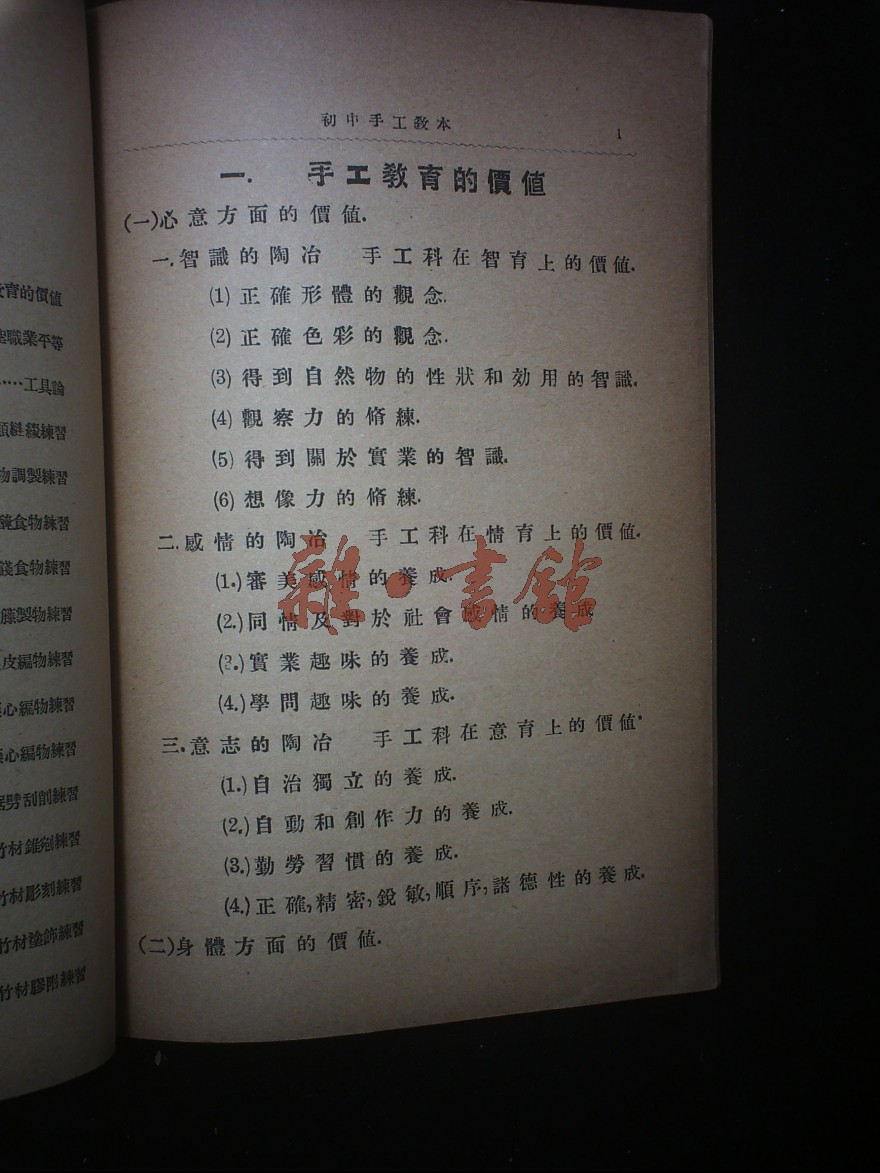 初中手工教本
1
一. 手工教育的價值
(一)心意方面的價值.
一.智識的陶冶 手工科在智育上的價值.
(1) 正確形體的觀念.
(2) 正確色彩的觀念.
(3) 得到自然物的性狀和効用的智識.
(4) 觀察力的脩練.
(5) 得到關於實業的智識.
(6) 想像力的脩練.
二.感情的陶冶 手工科在情育上的價值.
(1.)審美感情的養成.
(2.)同情及對於社會感情的養成
(3.)實業趣味的養成.
(4.)學問趣味的養成.
三.意志的陶冶 手工科在意育上的價值.
(1.)自治獨立的養成.
(2.)自動和創作力的養成.
(3.)勤勞習慣的養成.
(4.)正確,精密,銳敏,順序,諸德性的養成.
(二)身體方面的價值.
雜·書館
育的價值
職業平等
……工具論
縫綴練習
物調製練習
食物練習
食物練習
籐製物練習
皮編物練習
心編物練習
心編物練習
劈刮削練習
竹材錐鉋練習
竹材彫刻練習
竹材塗飾練習
竹材膠附練習